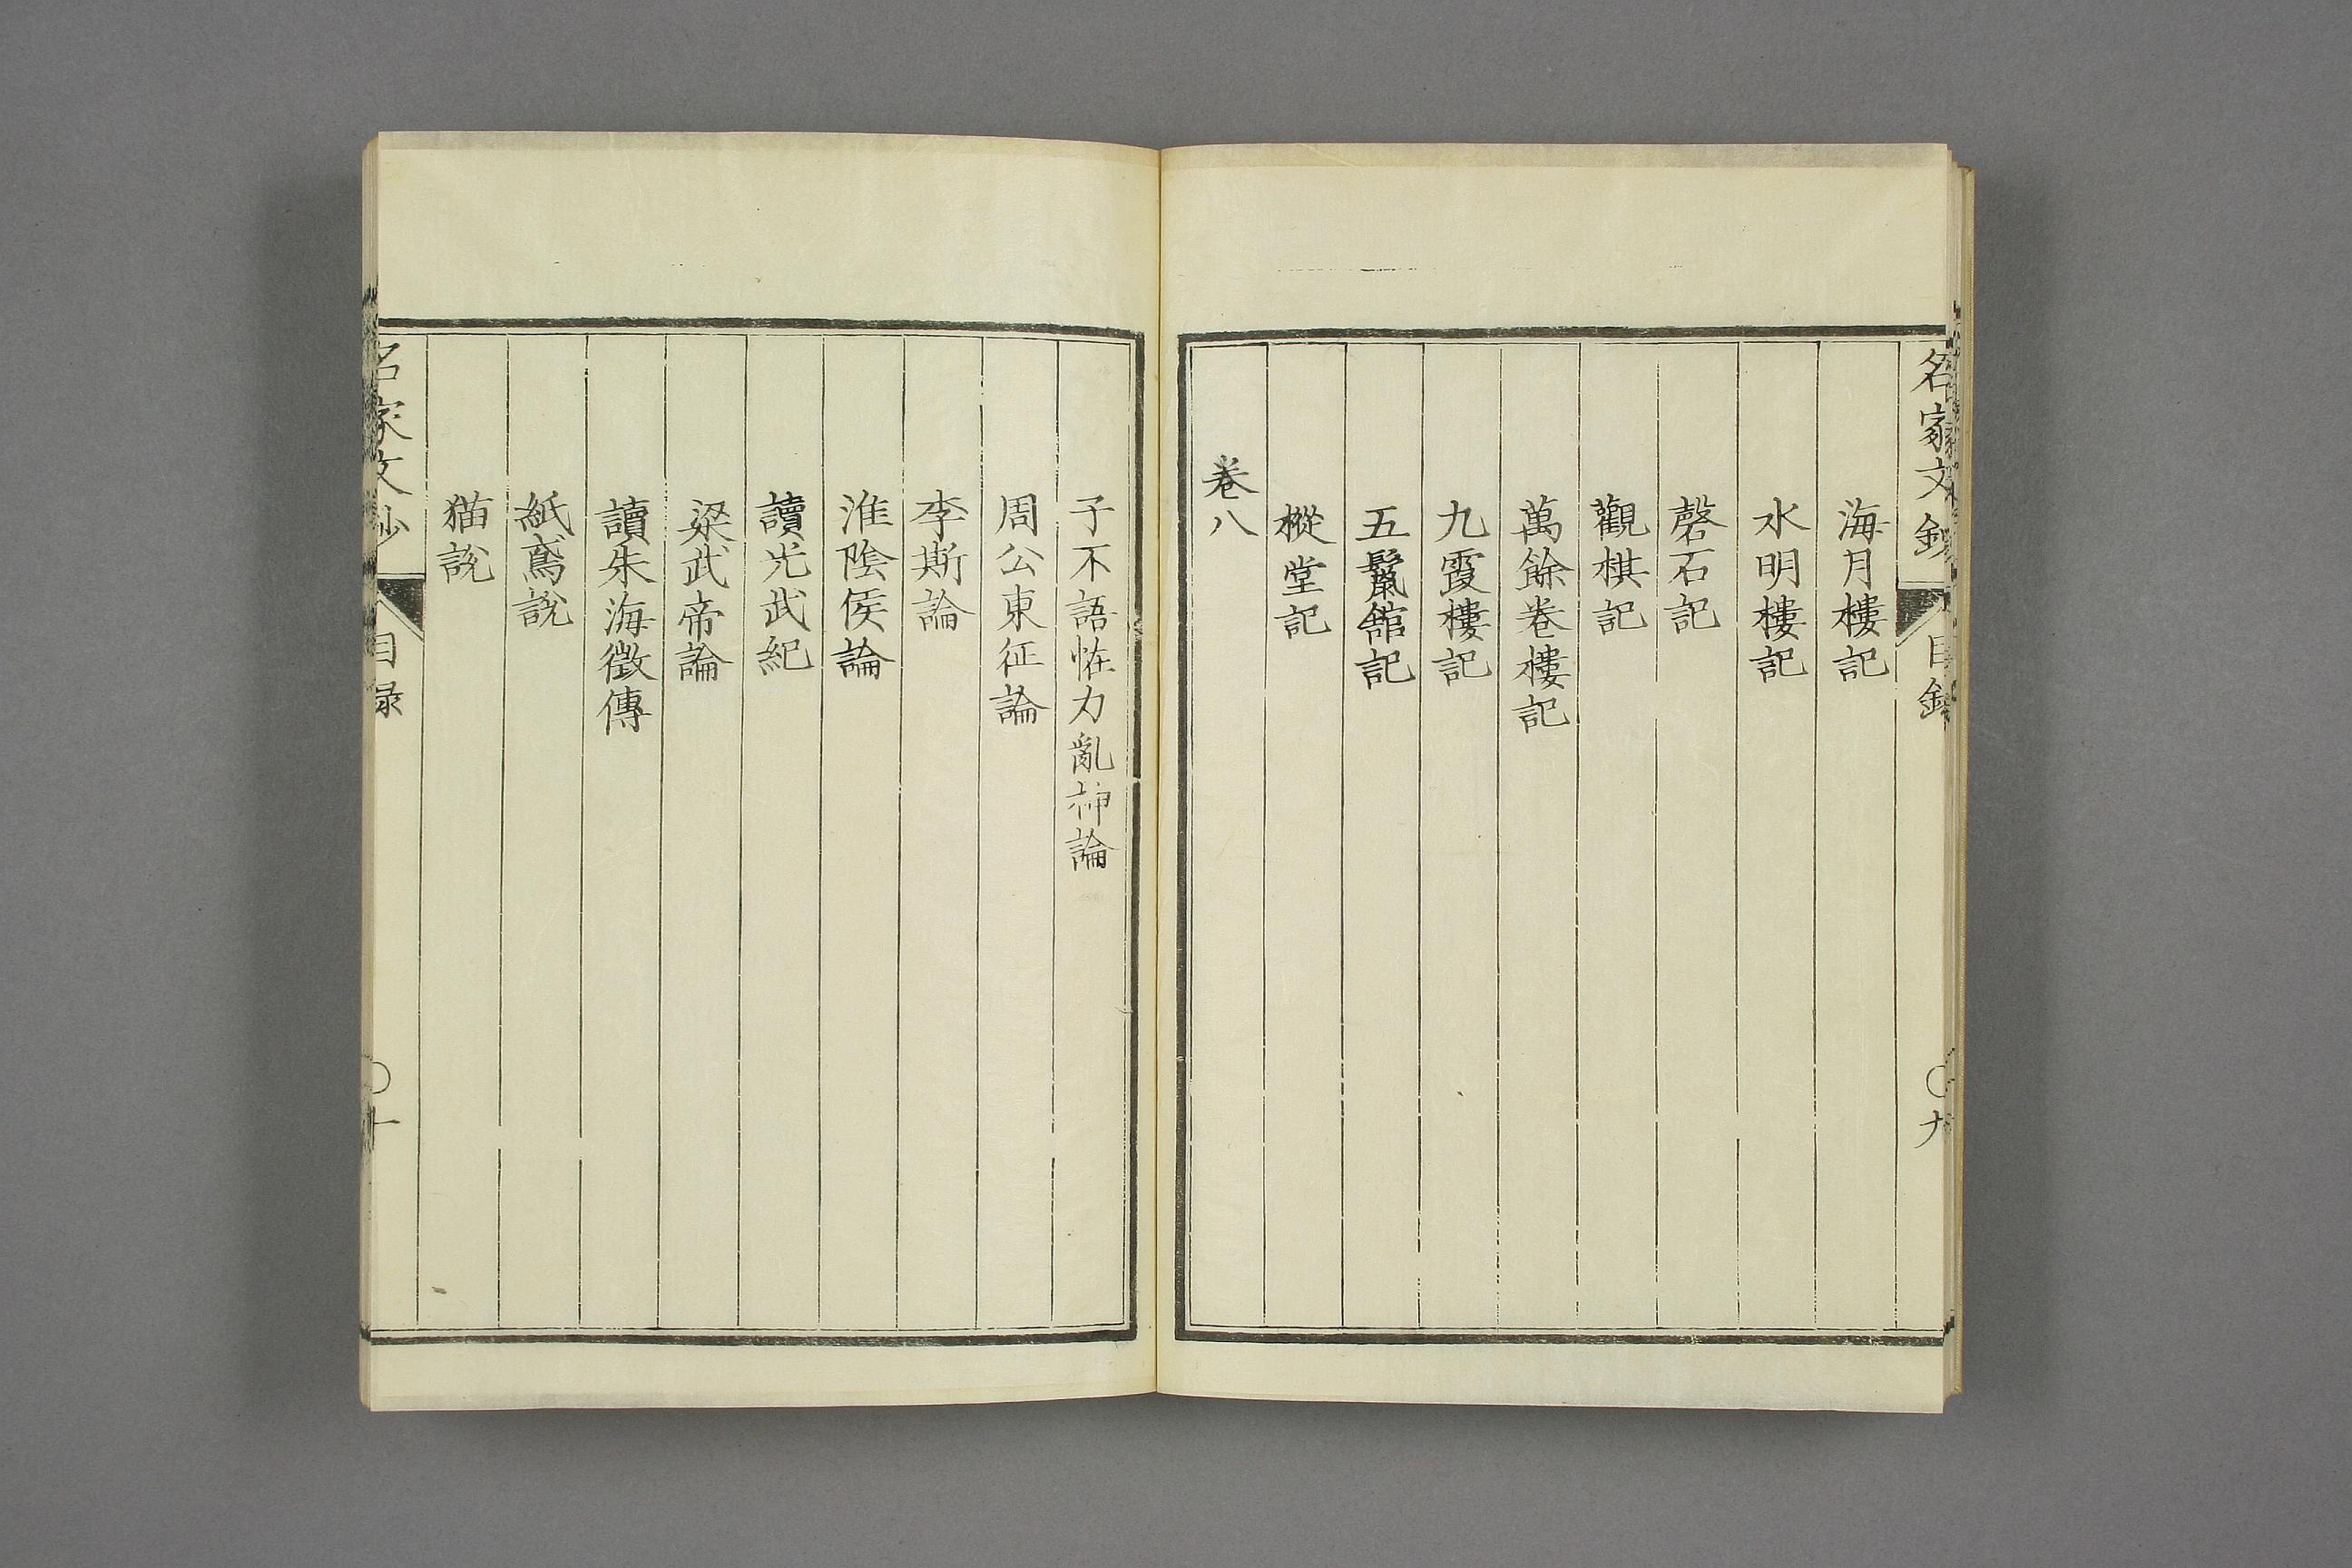 名家文鈔 目錄 〇九
海月樓記
水明樓記
磬石記
觀棋記
萬餘卷樓記
九霞樓記
五鬣舘記
樅堂記
卷八
子不語恠力亂神論
周公東征論
李斯論
淮陰侯論
讀光武紀
梁武帝論
讀朱海徵傳
紙鳶說
猫說
名家文鈔 目錄 〇十